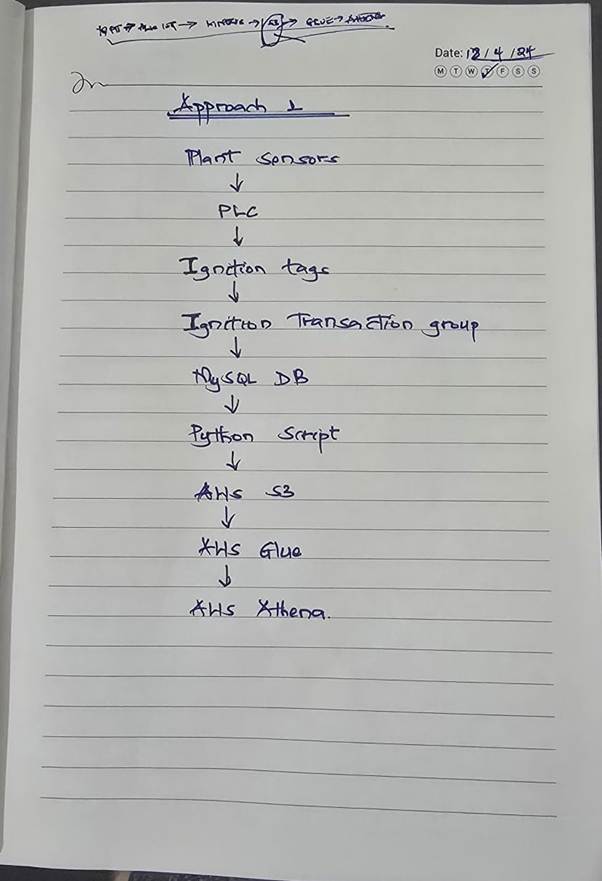 IoT → → S3 → GLUE →
Date: 18/4/24
M T W T F S S
Approach 1
Plant sensors
↓
PLC
↓
Ignition tags
↓
Ignition Transaction group
↓
MySQL DB
↓
Python Script
↓
AWS S3
↓
AWS Glue
↓
AWS Athena.